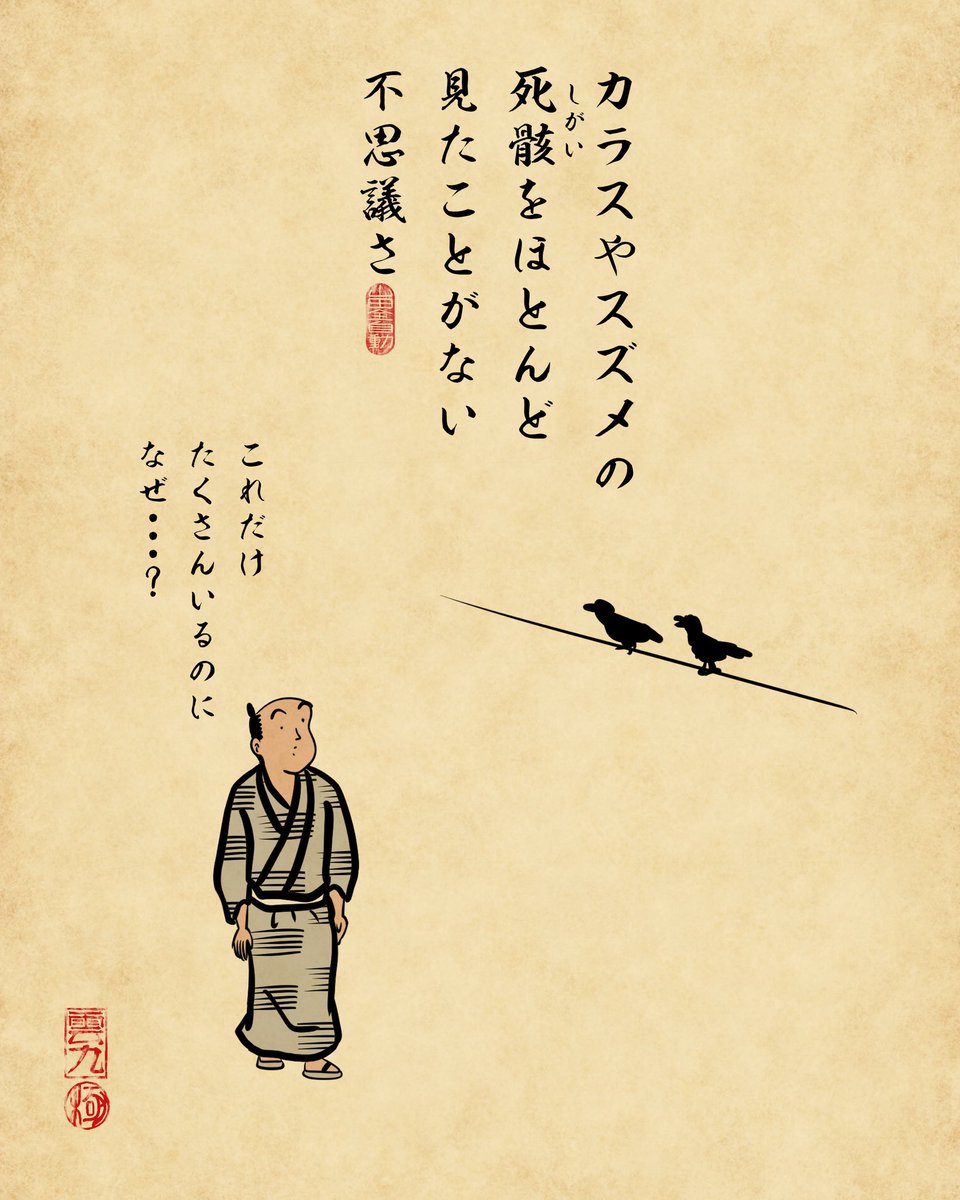 カラスやスズメの
死骸をほとんど
しがい
見たことがない
不思議さ
これだけ
たくさんいるのに
なぜ・・・?
雲九
極